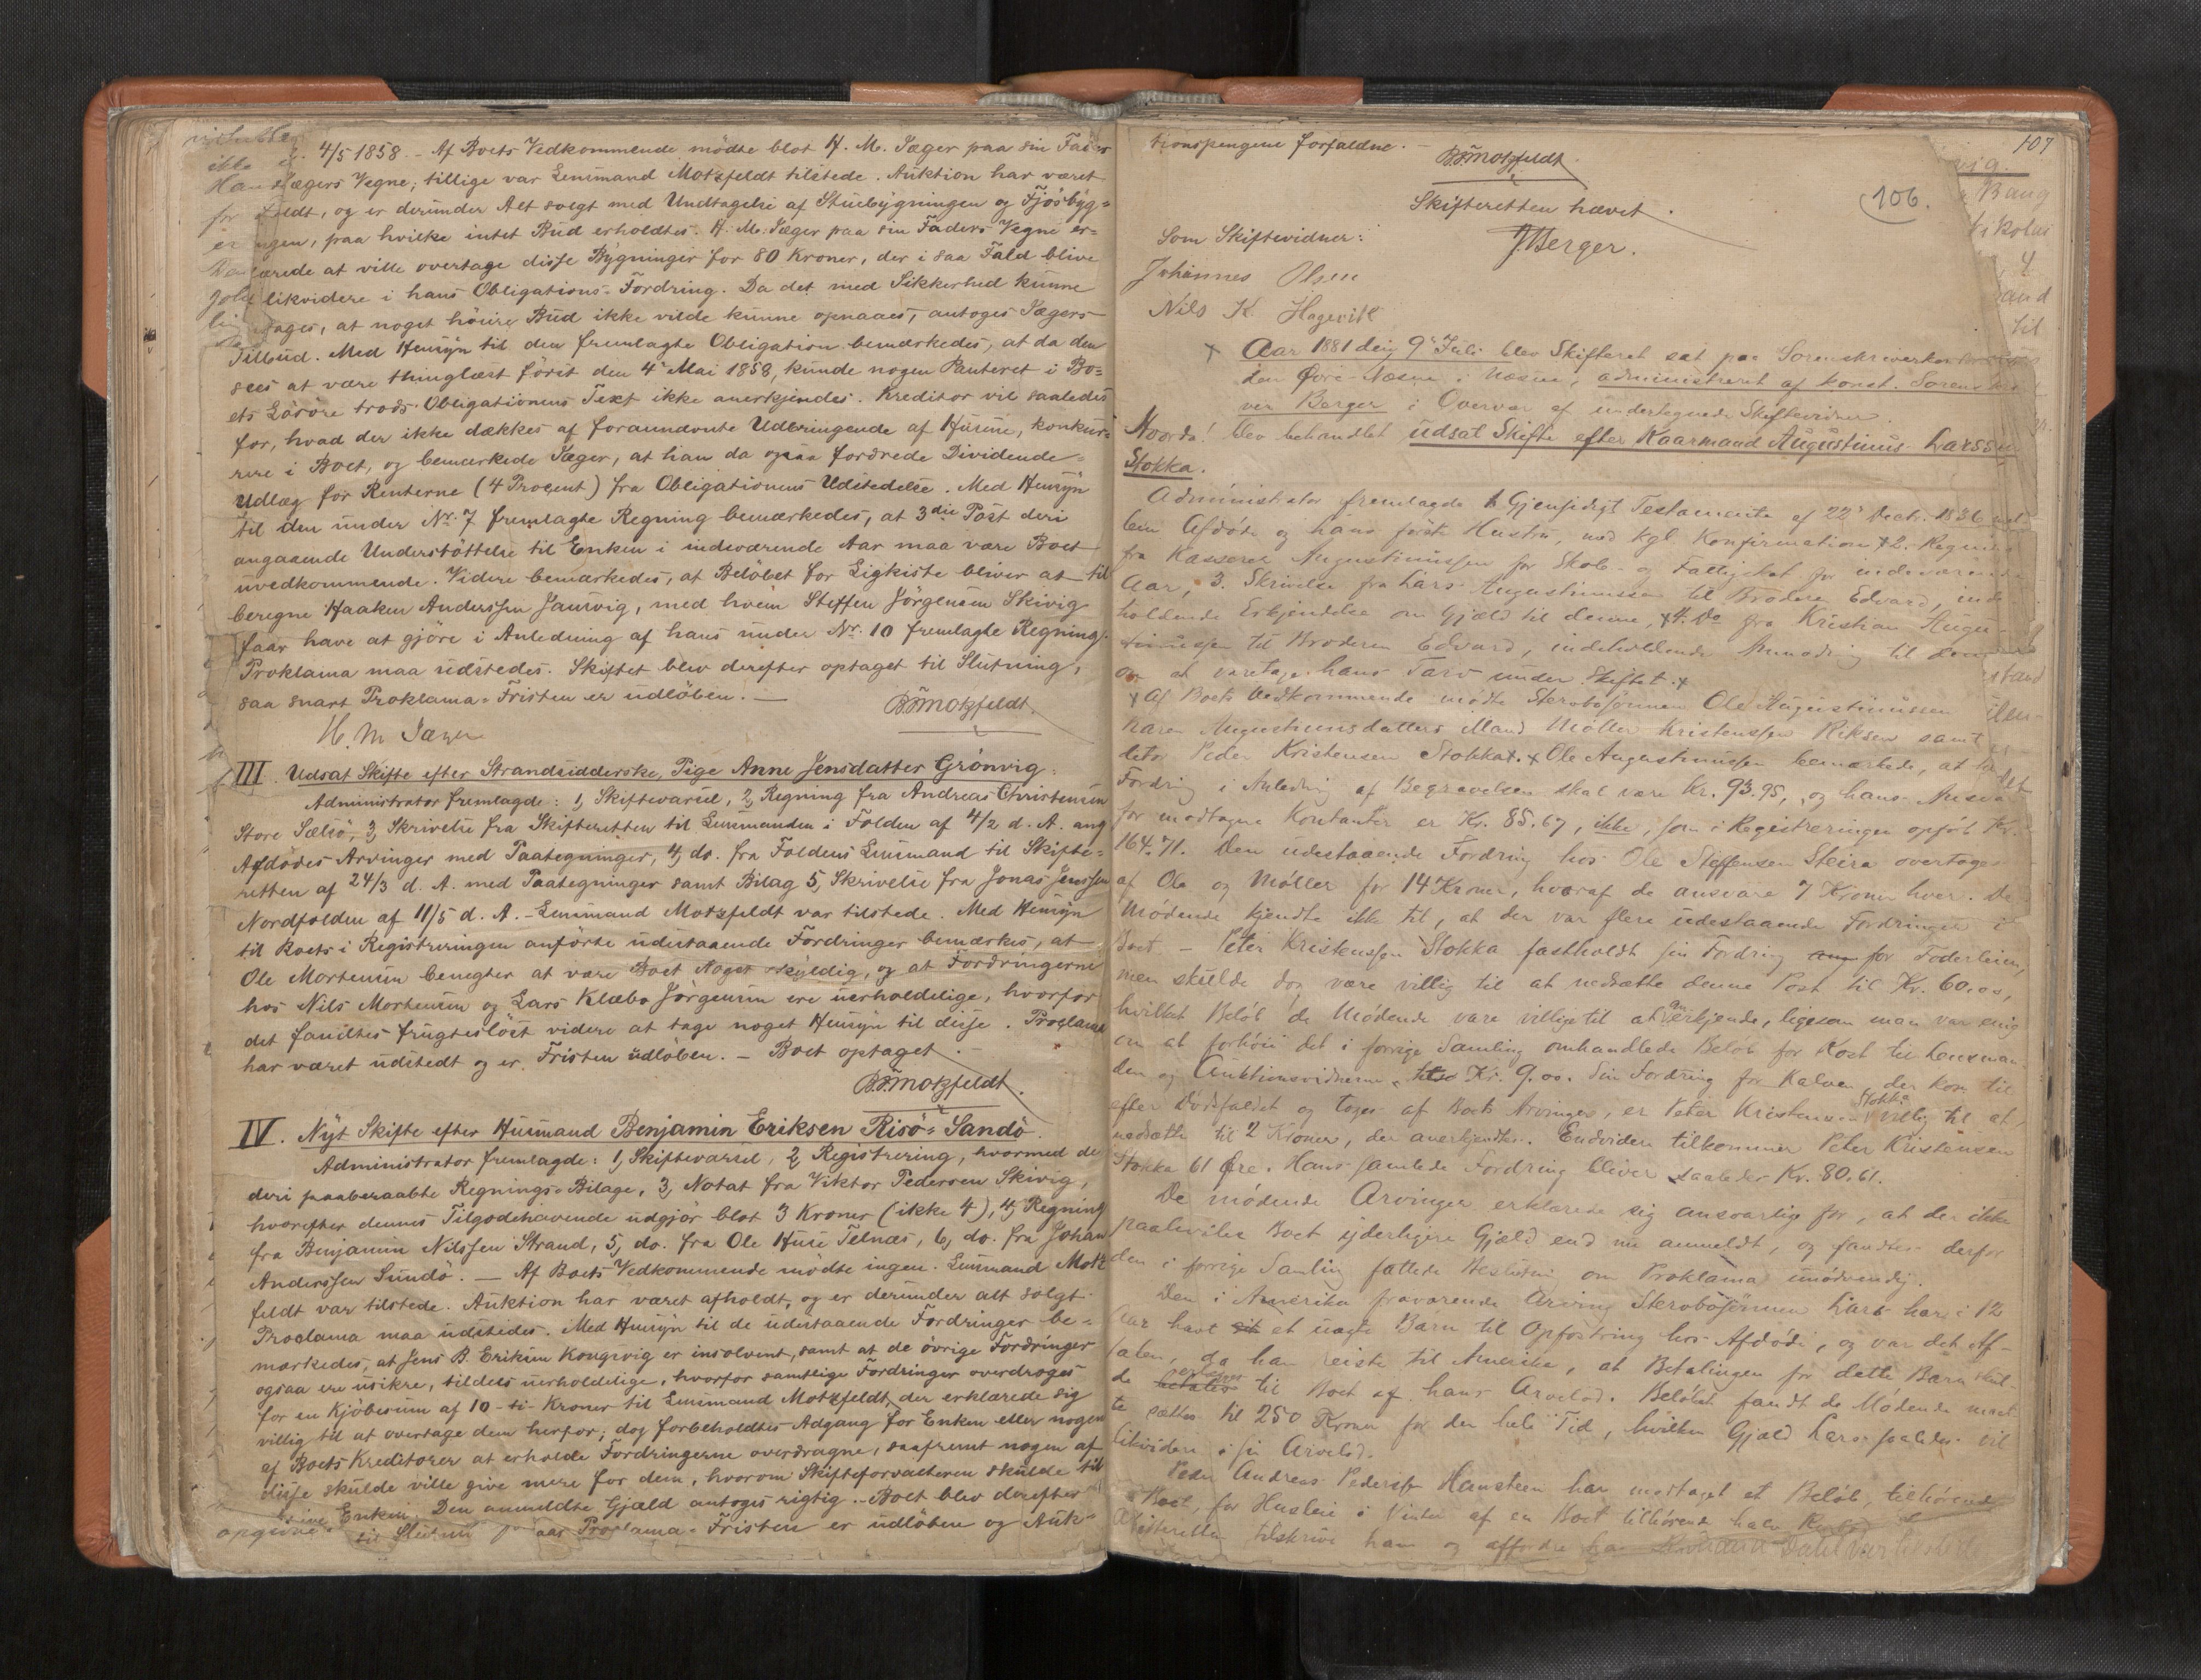 4/5 1858. – Af Boets Vedkommende mödte blot H. M. Jæger paa sin Faders
Jægers Vegne; tillige var Lensmand Motzfeldt tilstede. Auktion har været
og er derunder Alt solgt med Undtagelse af Stuebygningen og Fjösbyg=
ngen, paa hvilke intet Bud erholdtes. H. M. Jæger paa sin Faders Vegne er=
klærede at ville overtage disse Bygninger for 80 Kroner, der i saa Fald blive
likvidere i hans Obligations-Fordring. Da det med Sikkerhed kunne
tages, at noget höiere Bud ikke vilde kunne opnaaes, antoges Jægers
Tilbud. Med Hensyn til den fremlagte Obligation bemærkedes, at da den
sees at være thinglæst först den 4de Mai 1858, kunde nogen Panteret i Bo=
ets Lösöre trods Obligationens Text ikke anerkjendes. Kreditor vil saaledes
for, hvad der ikke dækkes af foranndvnte Udbringende af Husene, konkur=
rere i Boet, og bemærkede Jæger, at han da ogsaa fordrede Dividende=
Udlæg for Renterne (4 Procent) fra Obligationens Udstedelse. Med Hensyn
til den under Nr. 7 fremlagte Regning bemærkedes, at 3die Post deri
angaaende Understöttelse til Enken i indeværende Aar maa være Boet
uvedkommende. Videre bemærkedes, at Belöbet for Ligkiste bliver at til
beregne Haaken Anderssen Jausvig, med hvem Steffen Jörgensen Skivig
faar have at gjöre i Anledning af hans under Nr. 10 fremlagte Regning.
Proklama maa udstedes. Skiftet blev derefter optaget til Slutning,
saa snart Proklama=Fristen er udlöben. –
Motzfeldt
H. M Jæger
III. Udsat Skifte efter Strandsidderske, Pige Anne Jensdatter Grönvig.
Administrator fremlagde: 1, Skiftevarsel, 2, Regning fra Andreas Christensen
Store Sælsö, 3, Skrivelse fra Skifteretten til Lensmanden i Folden af 4/2 d. A. ang
Afdödes Arvinger med Paategninger, 4, do. fra Foldens Lensmand til Skifte=
retten af 24/3 d. A. med Paategninger samt Bilag 5, Skrivelse fra Jonas Jenssen
Nordfolden af 11/5 d. A. – Lensmand Motzfeldt var tilstede. Med Hensyn
til Boets i Registreringen anförte udestaaende Fordringer bemærkes, at
Ole Mortensen benegter at være Boet Noget skyldig, og at Fordringerne
hos Nils Mortensen og Lars Klæbo Jörgensen ere uerholdelige, hvorfor
det fandtes frugteslöst videre at tage noget Hensyn til disse. Proclama
har været udstedt og er Fristen udlöben. – Boet optaget.
Motzfeldt.
IV. Nyt Skifte efter Husmand Benjamin Eriksen Risö=Sandö.
Administrator fremlagde: 1, Skiftevarsel, 2, Registrering, hvormed de
deri paaberaabte Regnings=Bilage, 3, Notat fra Viktor Pedersen Skivig,
hvorefter dennes Tilgodehavende udgjör blot 3 Kroner (ikke 4), 4, Regning
fra Benjamin Nilssen Strand, 5, do. fra Ole Huse Telnæs, 6, do. fra Johan
Anderssen Sundö. – Af Boets Vedkommende mödte ingen. Lensmand Motz
feldt var tilstede. Auktion har været afholdt, og er derunder alt solgt.
Proclama maa udstedes. Med Hensyn til de udestaaende Fordringer be=
mærkedes, at Jens B. Eriksen Kongsvig er insolvent, samt at de övrige Fordringer
ogsaa ere usikre, tildels uerholdelige, hvorfor samtlige Fordringer overdroges
for en Kjöbesum af 10 – ti – Kroner til Lensmand Motzfeldt, der erklærede sig
villig til at overtage dem herfor; dog forbeholdtes Adgang for Enken eller nogen
af Boets Kreditorer at erholde Fordringerne overdragne, saafremt nogen af
disse skulde ville give mere for dem, hvorom Skifteforvalteren skulde til
Enken. Den anmeldte Gjæld antoges rigtig. – Boet blev derefter
Proclama=Fristen er udlöben og Auk=
107
tionspengene forfaldne. –
Motzfeldt.
106.
Skifteretten hævet.
Som Skiftevidner:
JBerger.
Johannes Olsen
Nils K. Hagevik
Aar 1881 den 9' Juli blev Skifteret sat paa Sorenskriver
den Övre-Næsne i Næsne, administreret af konst. Sorenskri
ver Berger i Overvær af undertegnede Skiftevidner.
Hvorda! blev behandlet udsat Skifte efter Kaarmand Augustinus Larssen
Stokka.
Administrator fremlagde 1. Gjensidigt Testamente af 22' Decbr. 1836
lem Afdøde og hans første Hustru, med kgl. Konfirmation, 2. Regning
fra Kasserer Augustinussen for Skole- og Fattigskat for indeværende
Aar, 3. Skrivelse fra Lars Augustinussen til Broderen Edvard, inde
holdende Erkjendelse om Gjæld til denne, 4. Do fra Kristian Augus
tinussen til Broderen Edvard, indeholdende Anmodning til
om at varetage hans Tarv under Skiftet.
Af Boets Vedkommende mødte Sterbosønnen Ole Augustinussen
Karen Augustinusdatters Mand Møller Kristenssen samt
Peder Kristensen Stokka. Ole Augustinussen bemærkede, at
Fordring i Anledning af Begravelsen skal være Kr. 93.95, og hans
for modtagne Kontanter er Kr. 85.67, ikke, som i Registreringen opført Kr.
164.71. Den udestaaende Fordring hos Ole Steffensen Steira overtoges
af Ole og Møller for 14 Kroner, hvoraf de ansvare 7 Kroner hver. De
Mødende kjendte ikke til, at der var flere udestaaende Fordringer i
Boet. – Peter Kristenssen Stokka fastholdt sin Fordring for Føderleien,
men skulde dog være villig til at nedsætte denne Post til Kr. 60.00,
hvilket Beløb de Mødende vare villige til at anerkjende, ligesom man var enig
om at forhøie det i forrige Samling omhandlede Beløb for Kost til Lensman
den og Auktionsvidnerne til Kr. 9.00. Sin Fordring for Kalven, der kom til
efter Dødsfaldet og toges af Boets Arvinger, er Peter Kristensen Stokka villig til at
nedsætte til 2 Kroner, der anerkjendtes. Endvidere tilkommer Peter Kristensen
Stokka 61 Øre. Hans samlede Fordring bliver saaledes Kr. 80.61.
De mødende Arvinger erklærede sig ansvarlig for, at der ikke
paahviler Boet yderligere Gjæld end nu anmeldt, og fandtes derfor
den i forrige Samling fattede Beslutning om Proklama unødvendig.
Den i Amerika fraværende Arving Sterbosønnen Lars har i 12
Aar havt et uægte Barn til Opfostring hos Afdøde, og var det Af-
talen, da han reiste til Amerika, at Betalingen for dette Barn skul-
de til Boet af hans Arvelod. Beløbet fandt de Mødende
sættes til 250 Kroner for den hele Tid, hvilken Gjæld Lars saaledes vil
likvidere i sin Arvelod.
Peder Andreas Pederssen Hansteen har modtaget et Beløb, tilhørende
Boet, for Husleie i Vinter af en Boet tilhørende halv
Skifteretten tilskrive ham og affordre ham